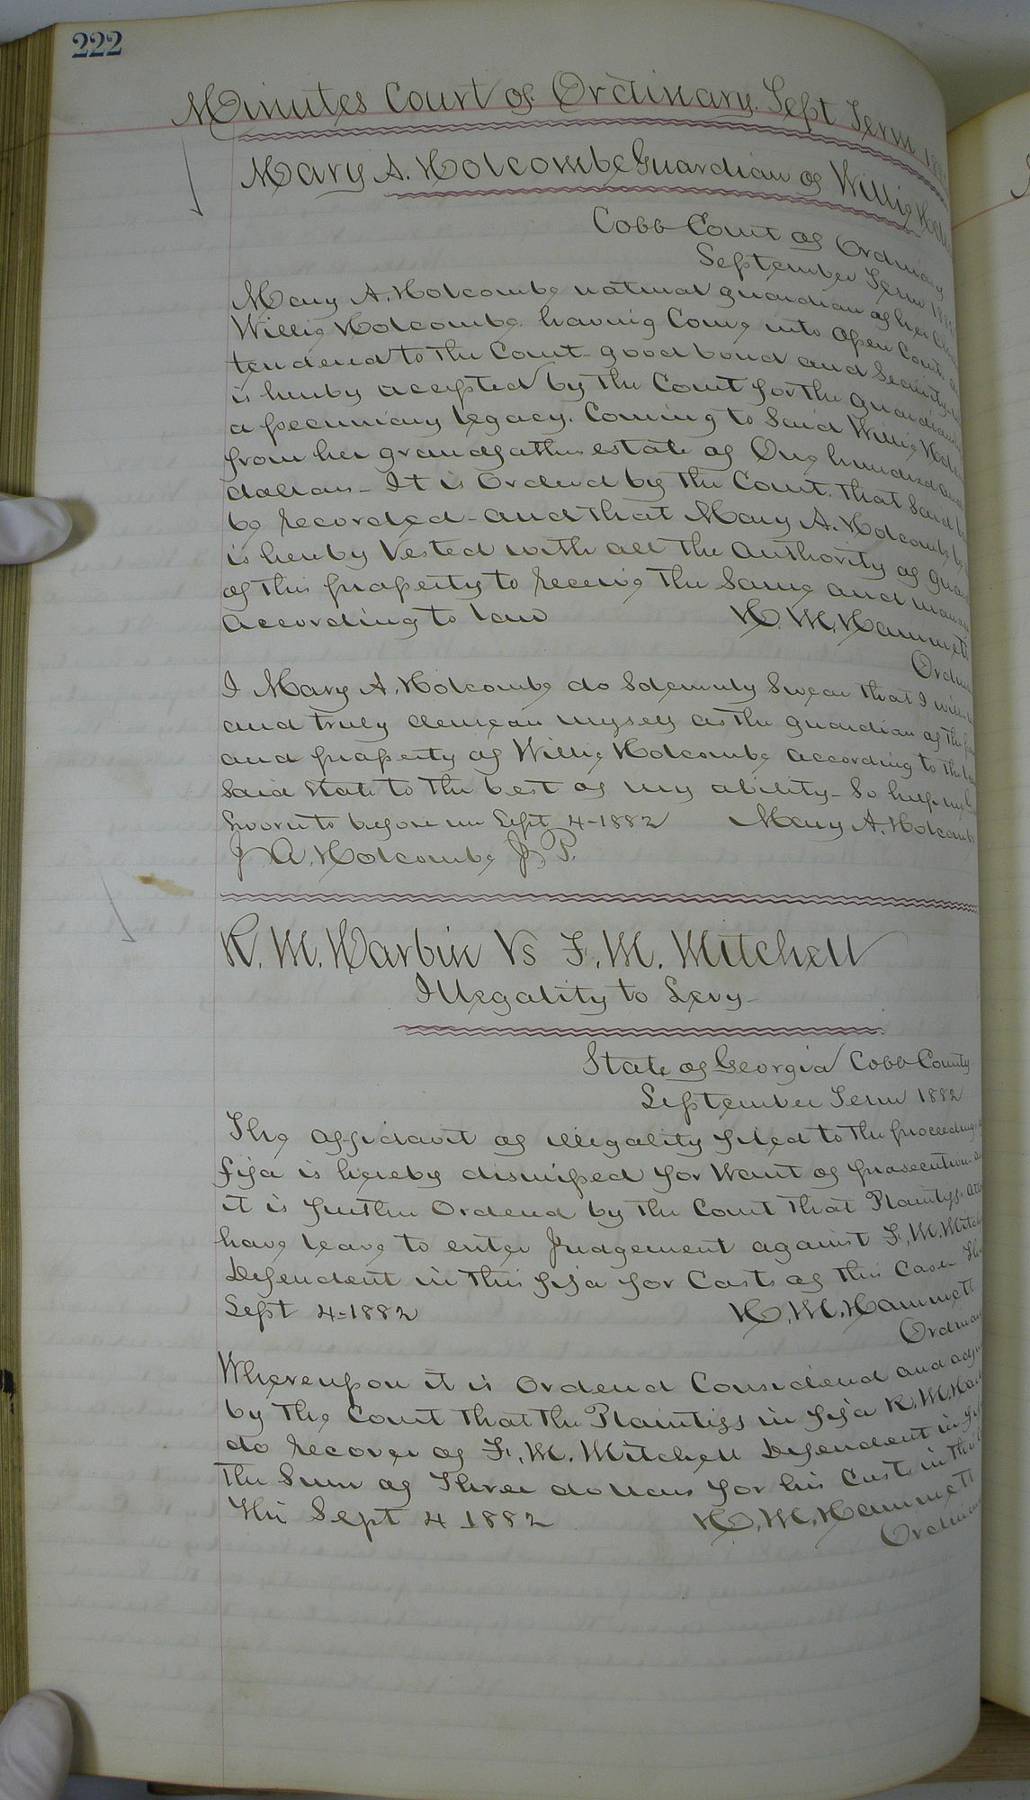 222
Minutes Court of Ordinary. Sept Term
Mary A. Holcombe Guardian of Willie
Cobb Court of Ordinary
September Term
Mary A. Holcombe natural guardian of her
Willie Holcombe having Come into Open Court
tendered to the Court good bond and Security
is hereby accepted by the Court for the guardian
a pecuniary legacy. Coming to Said Willie
from her grandfathers estate of One hundred
dollars - It is Ordered by the Court. that Said
be recorded - and that Mary A. Holcombe be
is hereby Vested with all the authority of
of this property to receive the Same and
according to law H. M. Hammett
Ordin
I Mary A. Holcombe do Solemnly Swear that I will
and truly demean myself as the guardian of the
and property of Willie Holcombe according to the
Said State to the best of my ability - So help me
Sworn to before me Sept 4-1882 Mary A. Holcomb
J A. Holcombe J. P.
R. M. Harbin Vs F. M. Mitchell
Illegality to Levy-
State of Georgia Cobb County
September Term 1882
The affidavit of illegality filed to the proceeding
fifa is hereby dismissed for Want of prosecution
it is further Ordered by the Court that Plaintiffs
have leave to enter Judgement against F. M. Mitch
Defendent in this fifa for Costs of this Case -
Sept 4-1882 H. M. Hammett
Ordinar
Whereupon it is Ordered Considered and adju
by the Court that the Plaintiffs in fifa R. M. Har
do recover of F. M. Mitchell Defendent in
the Sum of Three dollars for his Cost in this
This Sept 4 1882 H. M. Hammett
Ordinar